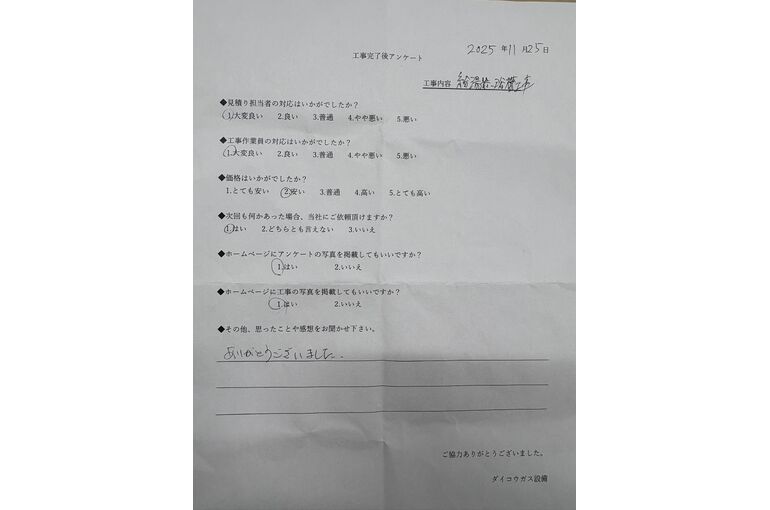 2025年11月25日
工事完了後アンケート
工事内容 給湯器の設置工事
◆見積り担当者の対応はいかがでしたか?
1.大変良い 2.良い 3.普通 4.やや悪い 5.悪い
◆工事作業員の対応はいかがでしたか?
1.大変良い 2.良い 3.普通 4.やや悪い 5.悪い
◆価格はいかがでしたか?
1.とても安い 2.安い 3.普通 4.高い 5.とても高い
◆次回も何かあった場合、当社にご依頼頂けますか?
1.はい 2.どちらとも言えない 3.いいえ
◆ホームページにアンケートの写真を掲載してもいいですか?
1.はい 2.いいえ
◆ホームページに工事の写真を掲載してもいいですか?
1.はい 2.いいえ
◆その他、思ったことや感想をお聞かせ下さい。
ありがとうございました.
ご協力ありがとうございました。
ダイコウガス設備